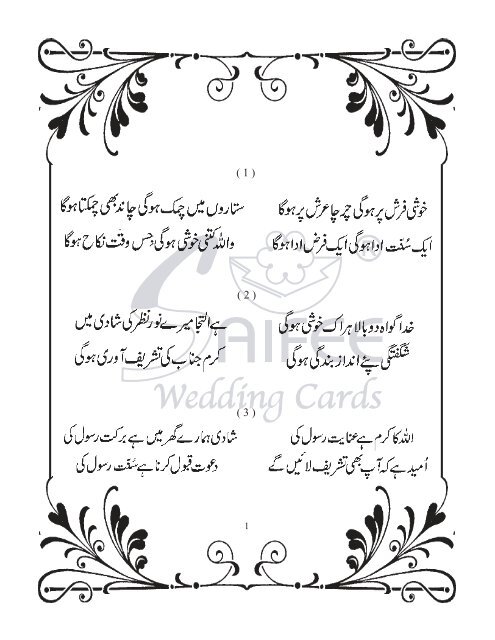 (1)
خوشی فرش پر ہوگی چرچا عرش پر ہوگا ستاروں میں چمک ہوگی چاند بھی چمکتا ہوگا
ایک سُنت ادا ہوگی ایک فرض ادا ہوگا واللہ کتنی خوشی ہوگی جس وقت نکاح ہوگا
(2)
خدا گواہ دوبالا ہر اک خوشی ہوگی ہے التجا میرے نور نظر کی شادی میں
شگفتگی پئے انداز بندگی ہوگی کرم جناب کی تشریف آوری ہوگی
SAIFEE ®
Wedding Cards
(3)
اللہ کا کرم ہے عنایت رسول کی شادی ہمارے گھر میں ہے برکت رسول کی
اُمید ہے کہ آپ بھی تشریف لائیں گے دعوت قبول کرنا ہے سُنّت رسول کی
1